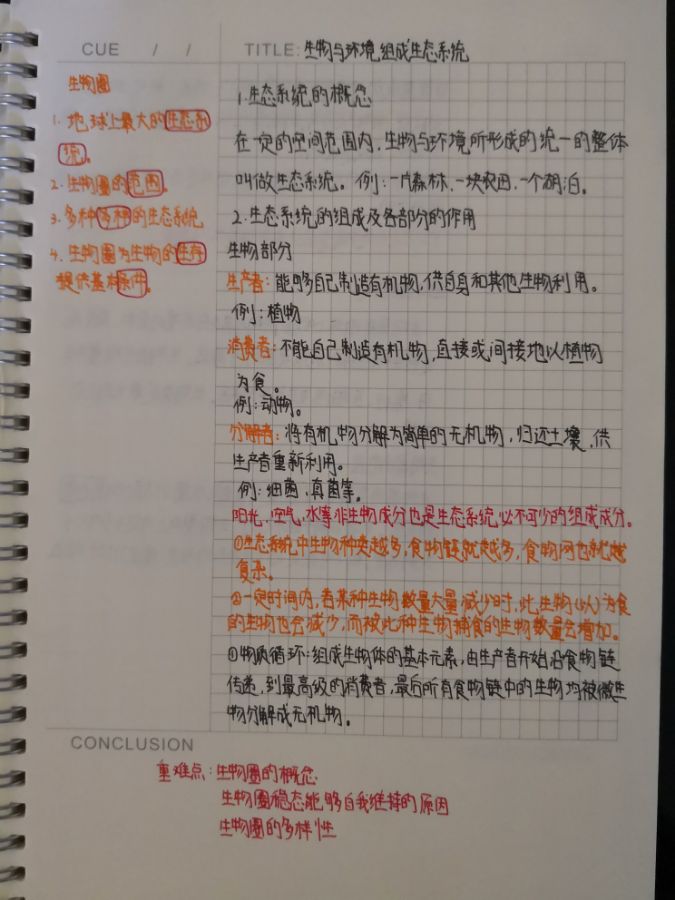 CUE / /
TITLE: 生物与环境组成生态系统
生物圈
1. 地球上最大的生态系
统。
2. 生物圈的范围。
3. 多种多样的生态系统
4. 生物圈为生物的生存
提供基本条件。
1.生态系统的概念
在一定的空间范围内,生物与环境所形成的统一的整体
叫做生态系统。例:一片森林、一块农田、一个湖泊。
2.生态系统的组成及各部分的作用
生物部分
生产者:能够自己制造有机物,供自身和其他生物利用。
例:植物
消费者:不能自己制造有机物,直接或间接地以植物
为食。
例:动物。
分解者:将有机物分解为简单的无机物,归还土壤,供
生产者重新利用。
例:细菌、真菌等。
阳光、空气、水等非生物成分也是生态系统必不可少的组成成分。
①生态系统中生物种类越多,食物链就越多,食物网也就越
复杂。
②一定时间内,若某种生物数量大量减少时,此生物(以)为食
的生物也会减少,而被此种生物捕食的生物数量会增加。
①物质循环:组成生物体的基本元素,由生产者开始沿食物链
传递,到最高级的消费者,最后所有食物链中的生物均被微生
物分解成无机物。
CONCLUSION
重难点:生物圈的概念
生物圈稳态能够自我维持的原因
生物圈的多样性